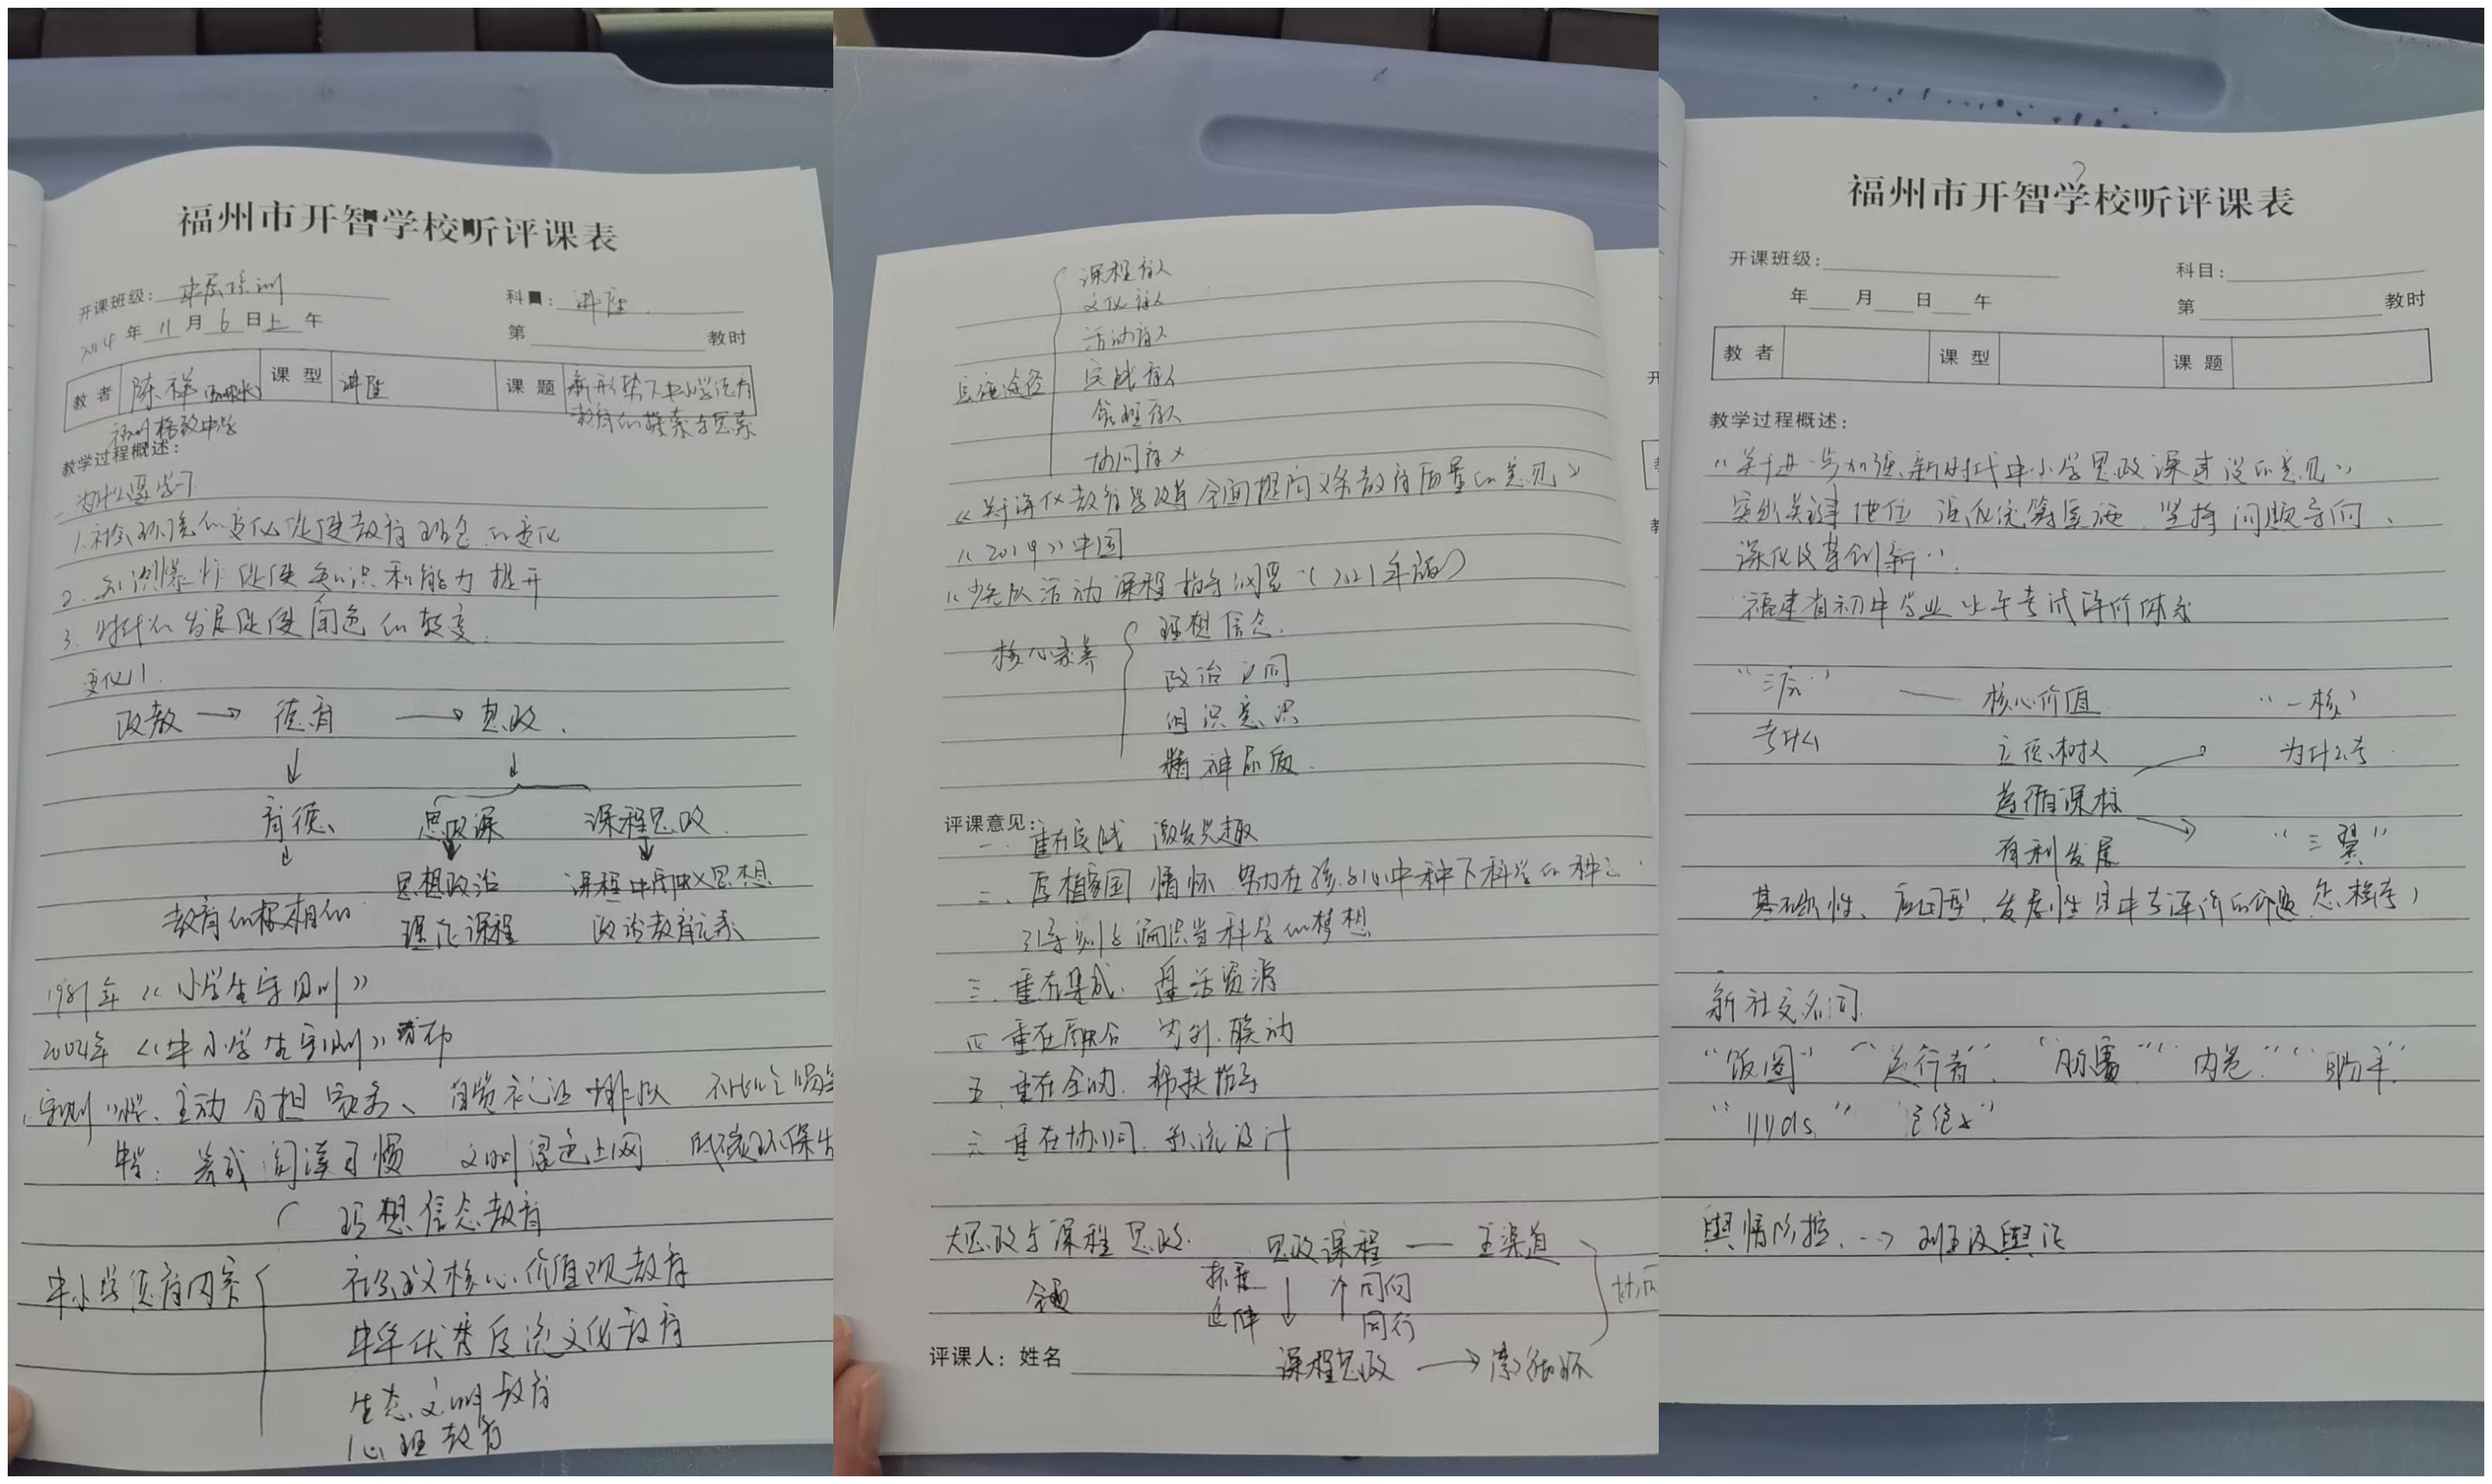 福州市开智学校听评课表
开课班级：中层培训 科目：讲座
年 11 月 6 日 上 午 第 教时
教者 陈祥 课型 讲座 课题 新形势下中小学德育
福州格致中学 教育的探索与思索
教学过程概述：
一、为什么要学习
1.社会环境的变化促使教育理念的变化
2.知识爆炸促使知识和能力提升
3.时代的发展促使角色的转变.
变化1.
政教 → 德育 → 思政.
↓ ↓
育德 思政课 课程思政.
↓ ↓ ↓
思想政治 课程中融入思想
教育的根本目的 理论课程 政治教育元素
1981年《小学生守则》
2004年《中小学生守则》发布
守则 小学、主动分担家务、自觉礼让排队
中学：养成阅读习惯 文明绿色上网 低碳环保
理想信念教育
中小学德育内容 社会主义核心价值观教育
中华优秀传统文化教育
生态文明教育
心理教育
课程育人
文化育人
活动育人
实施途径 实践育人
管理育人
协同育人
《关于深化教育教学改革全面提高义务教育质量的意见》
《2019》中国
《少先队活动课程指导纲要》（2021年版）
理想信念.
核心素养
政治认同
组织意识
精神品质.
评课意见：
一.重在实践 激发兴趣
二、厚植家国情怀 努力在孩子心中种下科学的种子.
引导 科学的梦想
三.重在集成.盘活资源
四 重在融合 内外.联动
五.重在 帮扶指导
六 重在协同.
大思政与课程思政. 思政课程 — 主渠道
拓展 ↓ ↑ 同向
延伸 同行
评课人：姓名 课程思政 →
福州市开智学校听评课表
开课班级： 科目：
年 月 日 午 第 教时
教者 课型 课题
教学过程概述：
“关于进一步加强新时代中小学思政课建设的意见”
突出关键地位 强化统筹实施.坚持问题导向、
深化改革创新”
“福建省初中学业水平考试评价体系
— 核心价值 “一核”
考什么 立德树人 为什么考.
遵循课标
有利发展 “三翼”
新社交名词.
“饭圈” “逆行者”、“ ” “内卷”“
“yyds” “
舆情防控. →